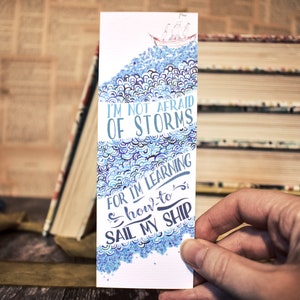 I'M NOT AFRAID
OF STORMS
FOR I'M LEARNING
how to
SAIL MY SHIP